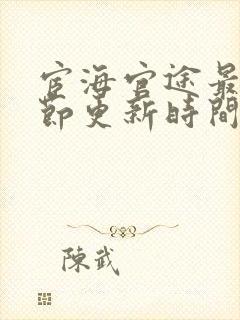 宦海官途最
節更新時間
陳武